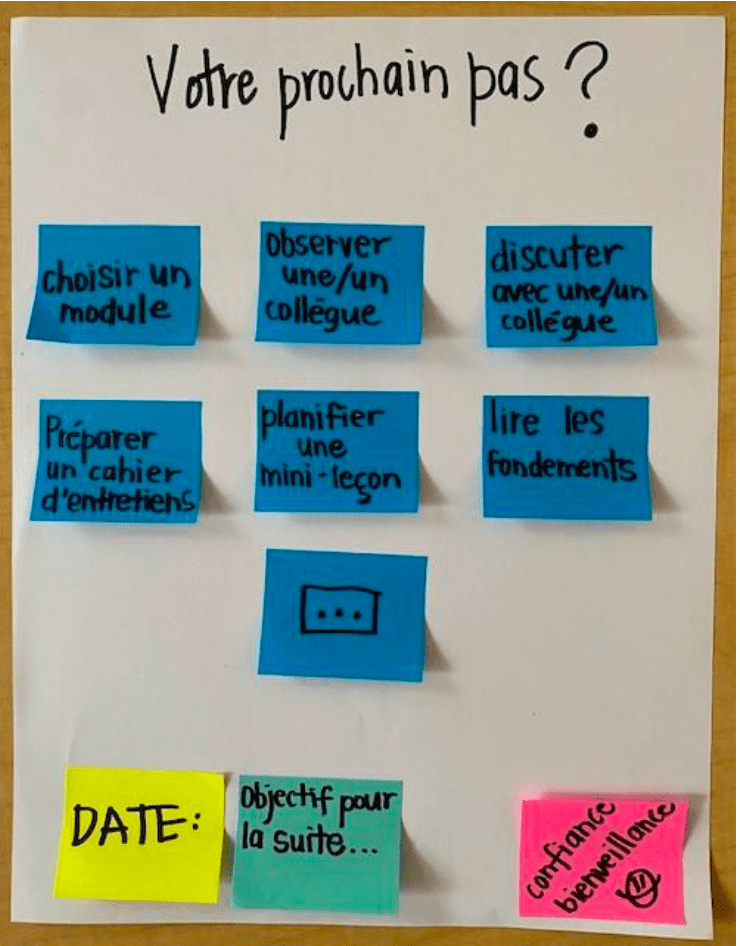 Votre prochain pas ?
choisir un
module
observer
une/un
collègue
discuter
avec une/un
collégue
Préparer
un cahier
d'entretiens
planifier
une
mini-leçon
lire les
fondements
...
DATE:
Objectif pour
la suite...
confiance
bienveillance